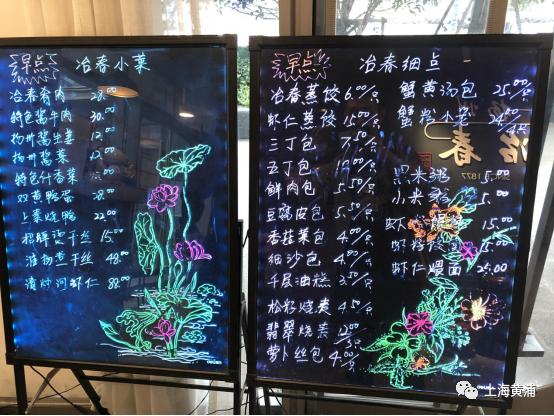 早点
冶春小菜
冶春肴肉 28.00
特色酱牛肉 30.00
扬州酱生姜 12.00
扬州酱菜 12.00
特色什香菜
双黄鸭蛋 28.00
上素烧鸭 22.00
招牌烫干丝 15.00
淮扬煮干丝 48.00
清炒河虾仁 88.00
早点
冶春细点
冶春蒸饺 6.00/只
虾仁蒸饺 15.00/只
三丁包 7.50/只
五丁包
鲜肉包 5.50/只
豆腐皮包 5.50/只
香菇菜包 4.00/只
细沙包 4.00/只
千层油糕 3.50/只
松籽烧卖 4.50/只
翡翠烧卖
萝卜丝包 4.00/只
蟹黄汤包 25.00/只
蟹粉小笼
黑米粥 5.00
小米粥 5.00
虾 15.00
虾
虾仁煨面 25.00
冶春
1877
上海黄浦